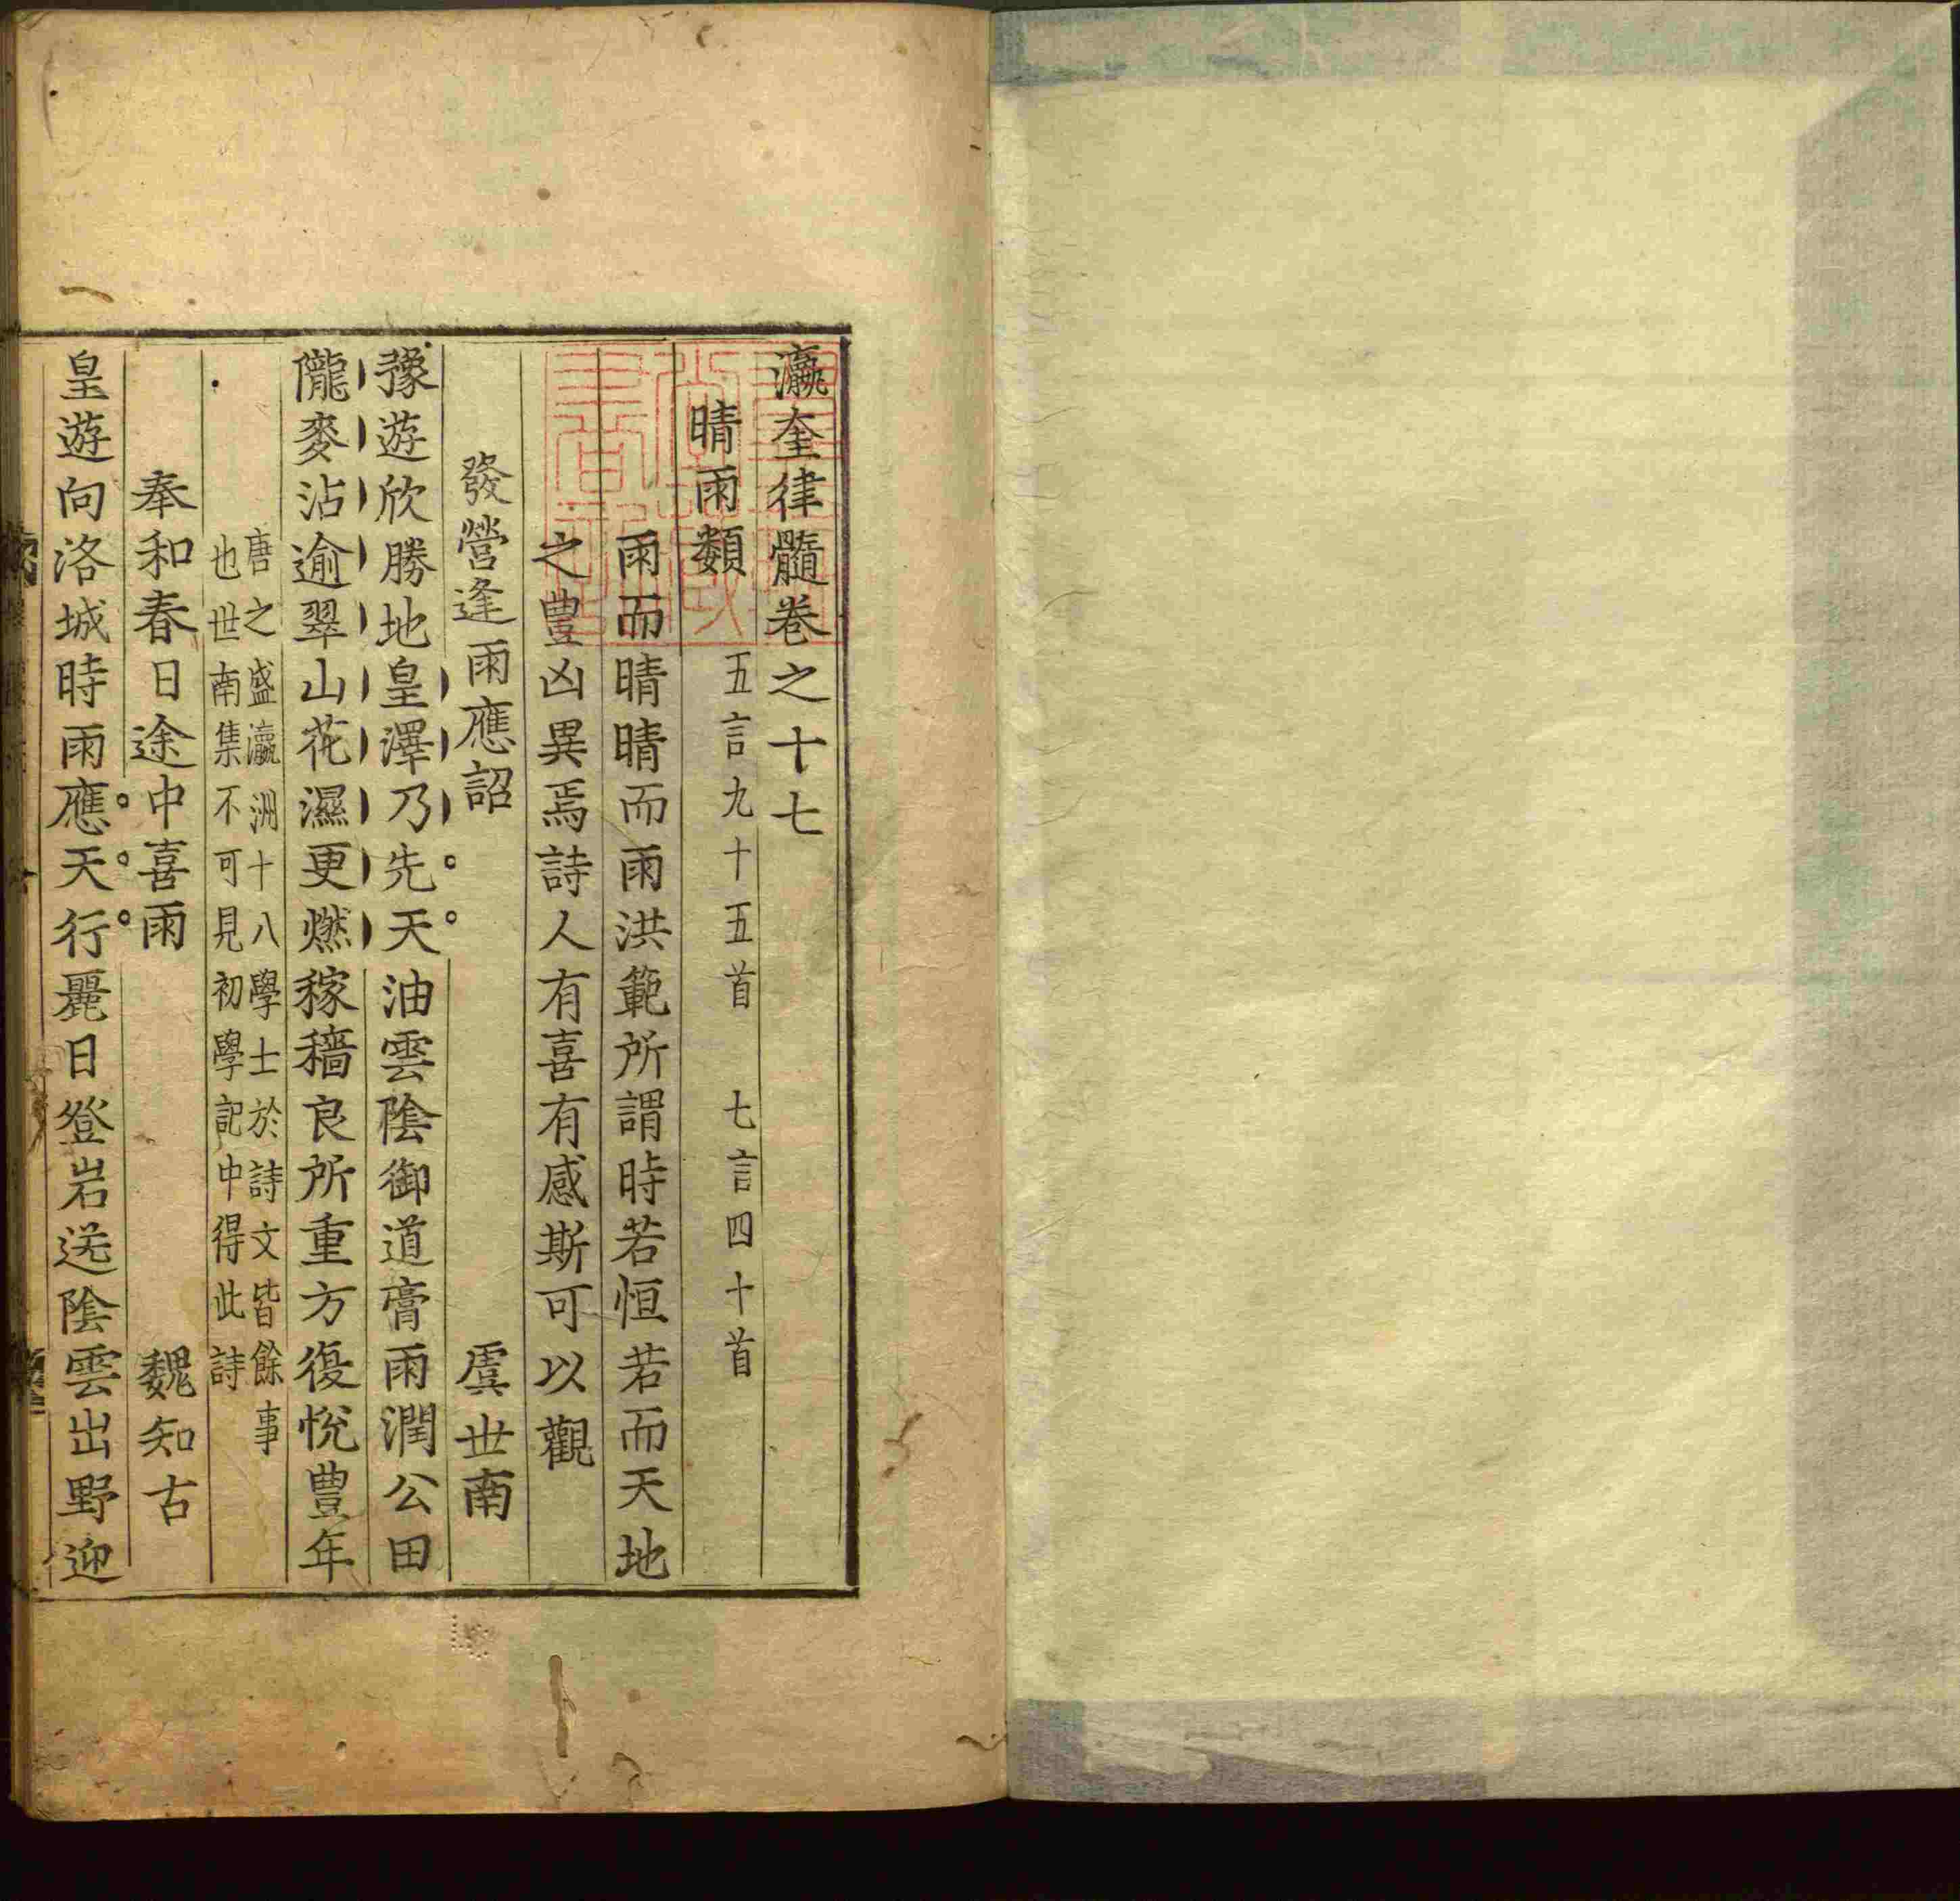 瀛奎律髓卷之十七
晴雨類 五言九十五首 七言四十首
雨而晴晴而雨洪範所謂時若恒若而天地
之豊凶異焉詩人有喜有感斯可以觀
發營逢雨應詔 虞世南
豫遊欣勝地皇澤乃先天油雲陰御道膏雨潤公田
隴麥沾逾翠山花濕更燃稼穡良所重方復悅豊年
唐之盛瀛洲十八學士於詩文皆餘事
也世南集不可見初學記中得此詩
奉和春日途中喜雨 魏知古
皇遊向洛城時雨應天行麗日登岩送陰雲出野迎